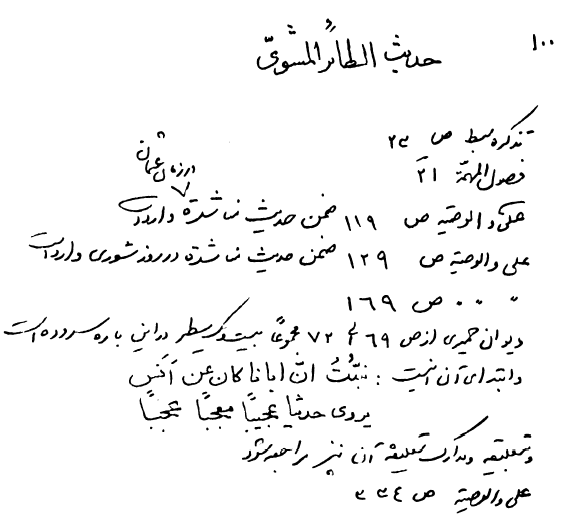 ۱۰۰
حدیث الطائر المشویّ
تذکره سبط ص ۲۳
فصول المهمّة ۲۱
در زمان عثمان
علی و الوصیة ص ۱۱۹ ضمن حدیث مناشدة وارد است
علی و الوصیة ص ۱۲۹ ضمن حدیث مناشدة در روز شوری وارد است
" " ص ۱۶۹
دیوان حمیری از ص ۶۹ الی ۷۲ مجموعاً بیست و یک سطر در این باره سروده است
و ابتدای آن اینست : نبّئتُ انّ ابانا کان عن أنس
یروی حدیثا عجیبًا معجبًا عجبًا
و تعلیقه و مدارک تعلیقه آن نیز مراجعه شود
علی و الوصیة ص ۳۳۴